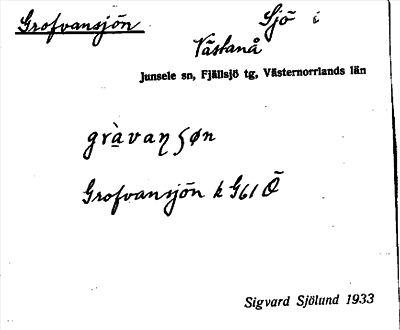 Grofvansjön
Sjö i
Västanå
Junsele sn, Fjällsjö tg, Västernorrlands län
gràvaɳ ʃøn
Grofvansjön k G61 Ö
Sigvard Sjölund 1933